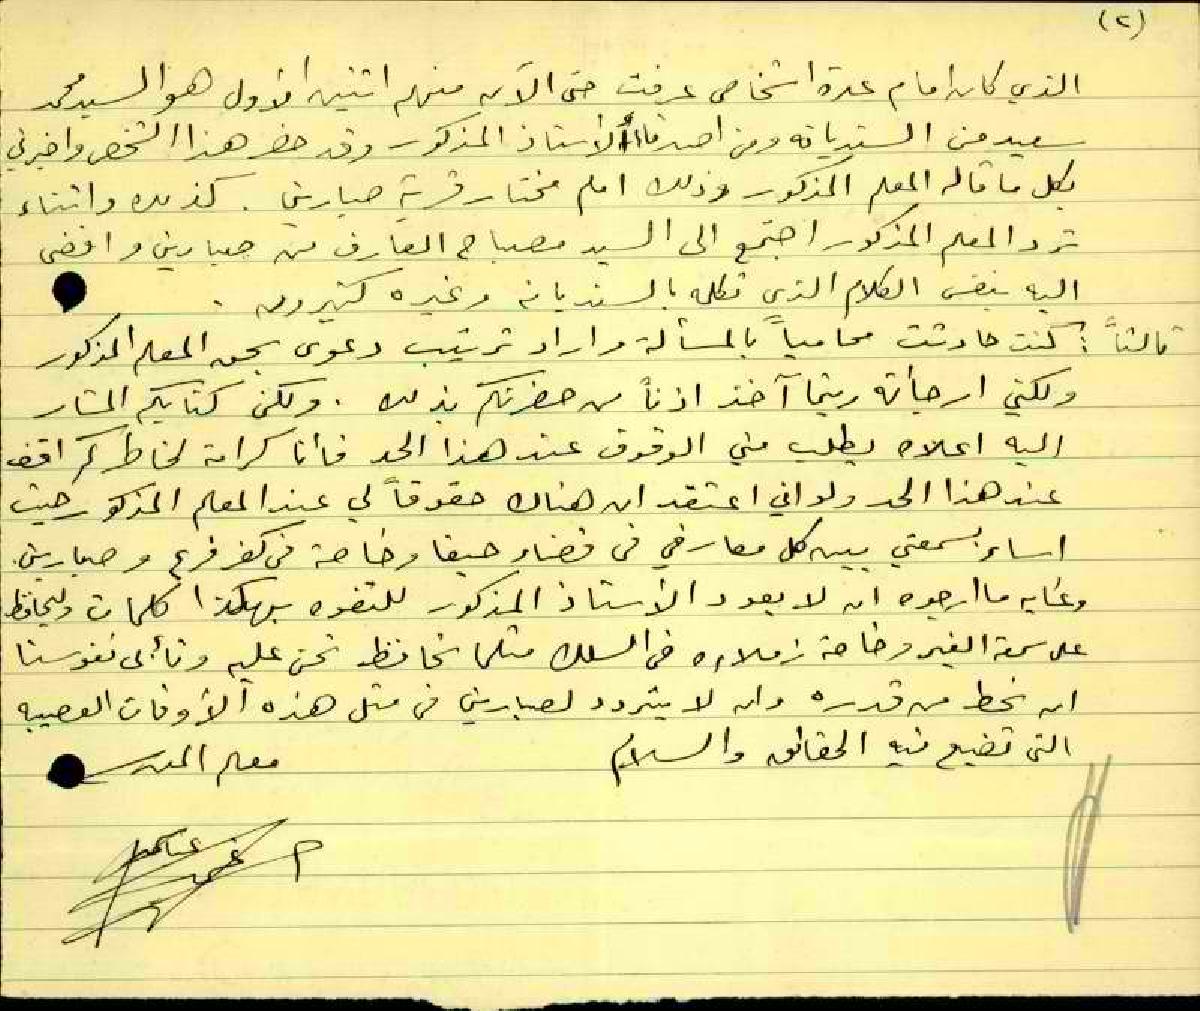 (٢)
الذي كان امام عدة اشخاص عرفت حتى الآن منهم اثنين الأول هو السيد محمد
سعيد من السنديانه ومن اصدقاء الأستاذ المذكور وقد حضر هذا الشخص واخبرني
بكل ما قاله المعلم المذكور وذلك امام مختار قرية صبارين . كذلك واثناء
تردد المعلم المذكور اجتمع الى السيد مصباح العارف من صبارين وافضى
اليه بنفس الكلام الذي تكلمه بالسنديانه وغيره كثيرون .
ثالثاً : كنت حادثت محامياً بالمسألة واراد ترتيب دعوى بحق المعلم المذكور
ولكني ارجأته ريثما آخذ اذناً من حضرتكم بذلك . ولكن كتابكم المشار
اليه اعلاه يطلب مني الوقوف عند هذا الحد فانا كرامة لخاطركم اقف
عند هذا الحد ولو اني اعتقد ان هناك حقوقاً لي عند المعلم المذكور حيث
اساء بسمعتي بين كل معارفي في قضاء حيفا وخاصة في كفر قرع وصبارين.
وغايه ما ارجوه ان لا يعود الأستاذ المذكور للتفوه بهكذا كلمات وليحافظ
على سمعة الغير وخاصة زملاءه في السلك مثلما نحافظ نحن عليه وتأبى نفوسنا
ان نحط من قدره وان لا يتردد لصبارين في مثل هذه الأوقات العصيبه
التي تضيع فيه الحقائق والسلام
معلم المدرسة